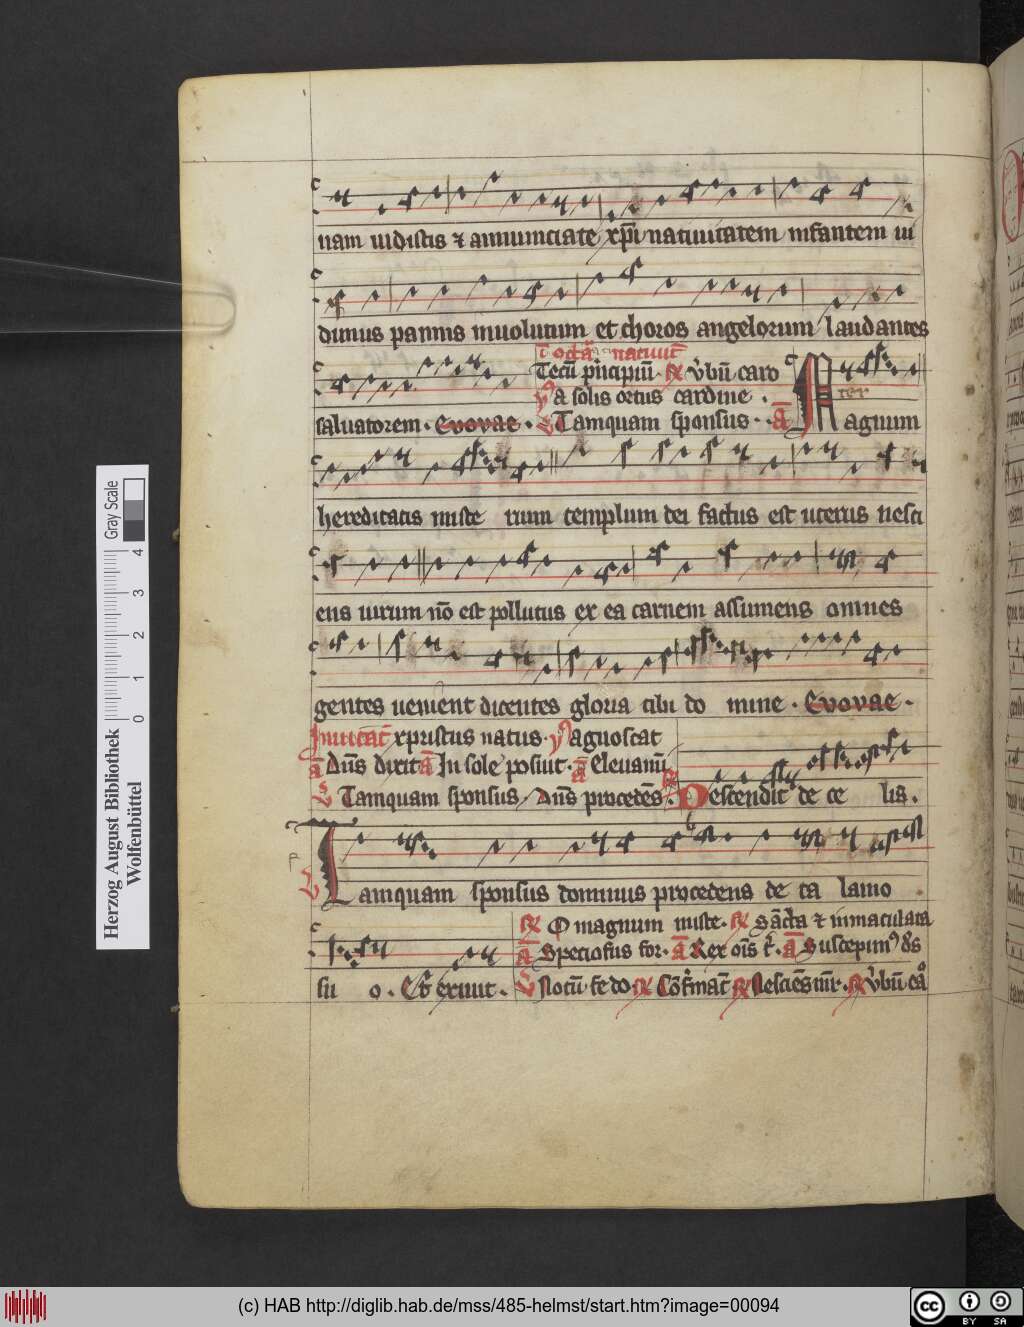 nam uidistis ⁊ annunciate xp̄i natiuitatem infantem ui
dimus pannis inuolutum et choros angelorum laudantes
natiuit̄
Tecū p̄ncipiū · ℟ v̄bū caro
a solis ortus cardine .
saluatorem · Euouae · Tamquam sponsus · ā Magnum
hereditatis miste rium templum dei factus est uterus nesci
ens uirum nō est pollutus ex ea carnem assumens omnes
gentes uenient dicentes gloria tibi do mine · Euouae ·
Inuitat̄ xpristus natus · agnoscat
ā Dn̄s dixit ā In sole posiut · ā Eleuamī
Tamquam sponsus / Dn̄s procedēs · ℟ Descendit de ce lis .
Tamquam sponsus dominus procedens de ta lamo
℟ O magnum miste · ℟ Sācta ⁊ inmaculata
ā Speciosus for · ā Rex
su o · exiuit ·
Herzog August Bibliothek
Wolfenbüttel
0 1 2 3 4
Gray Scale
(c) HAB http://diglib.hab.de/mss/485-helmst/start.htm?image=00094
cc BY SA